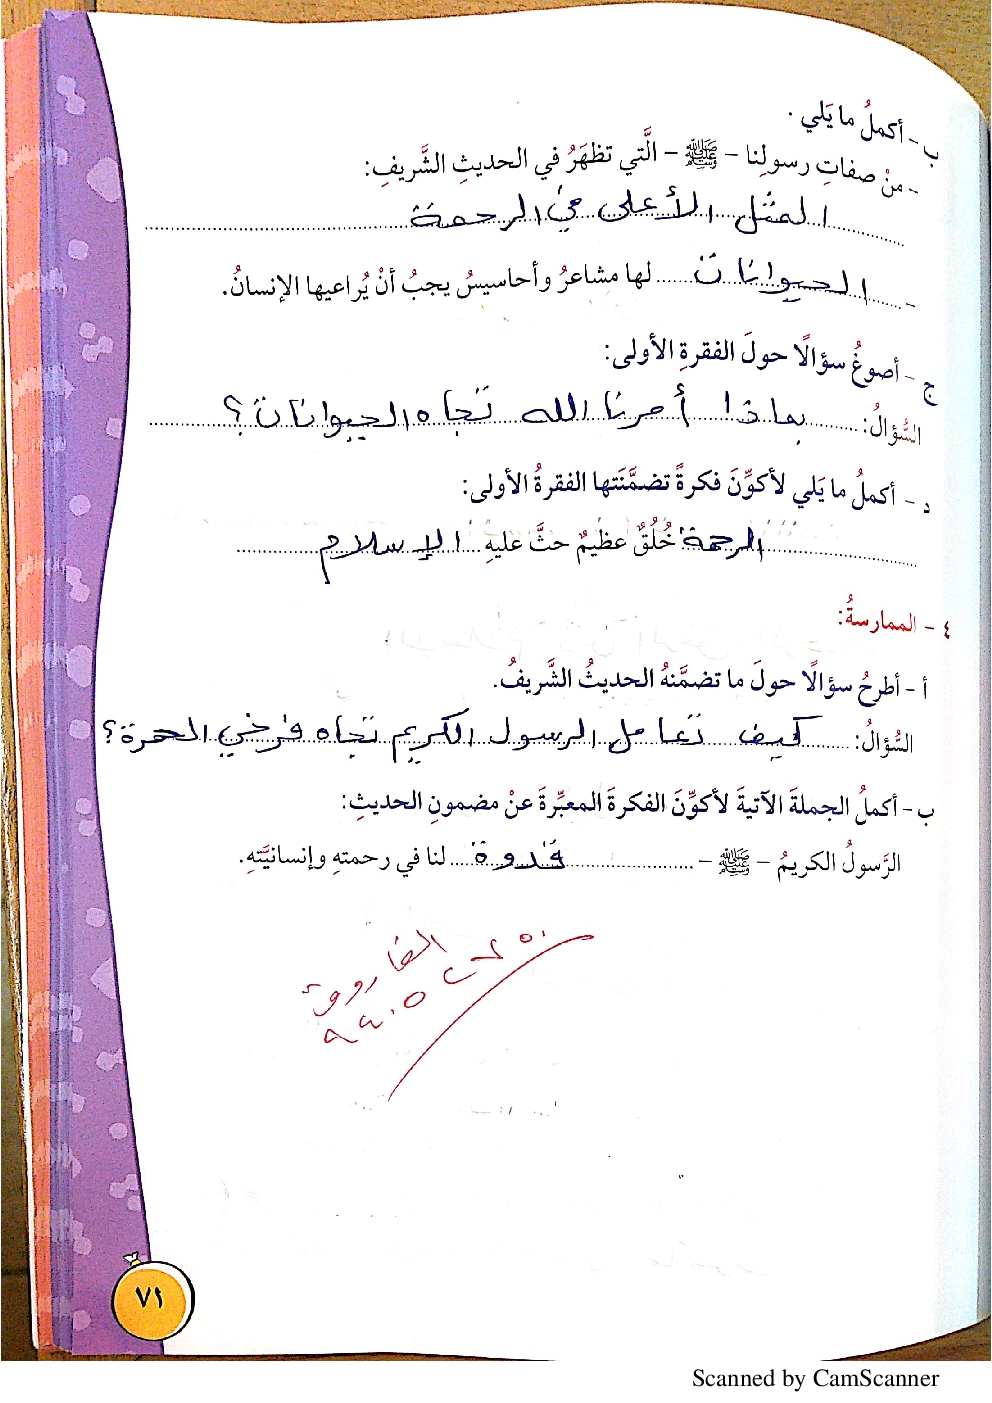 ب - أكملُ ما يَلي .
- منْ صفاتِ رسولِنا - ﷺ - الَّتي تظهَرُ في الحديثِ الشَّريفِ:
المثل الأعلى في الرحمة
- الحيوانات لها مشاعرُ وأحاسيسُ يجبُ أنْ يُراعيها الإنسانُ.
ج - أصوغُ سؤالًا حولَ الفقرةِ الأولى:
السُّؤالُ: بماذا أمرنا الله تجاه الحيوانات؟
د - أكملُ ما يَلي لأكوِّنَ فكرةً تضمَّنَتها الفقرةُ الأولى:
الرحمة خُلُقٌ عظيمٌ حثَّ عليهِ الإسلام
٤ - الممارسةُ:
أ - أطرحُ سؤالًا حولَ ما تضمَّنهُ الحديثُ الشَّريفُ.
السُّؤالُ: كيف تعامل الرسول الكريم تجاه فرخي الحمرة؟
ب - أكملُ الجملةَ الآتيةَ لأكوِّنَ الفكرةَ المعبِّرةَ عنْ مضمونِ الحديثِ:
الرَّسولُ الكريمُ - ﷺ - قدوة لنا في رحمتهِ وإنسانيَّتهِ.
٧١
Scanned by CamScanner